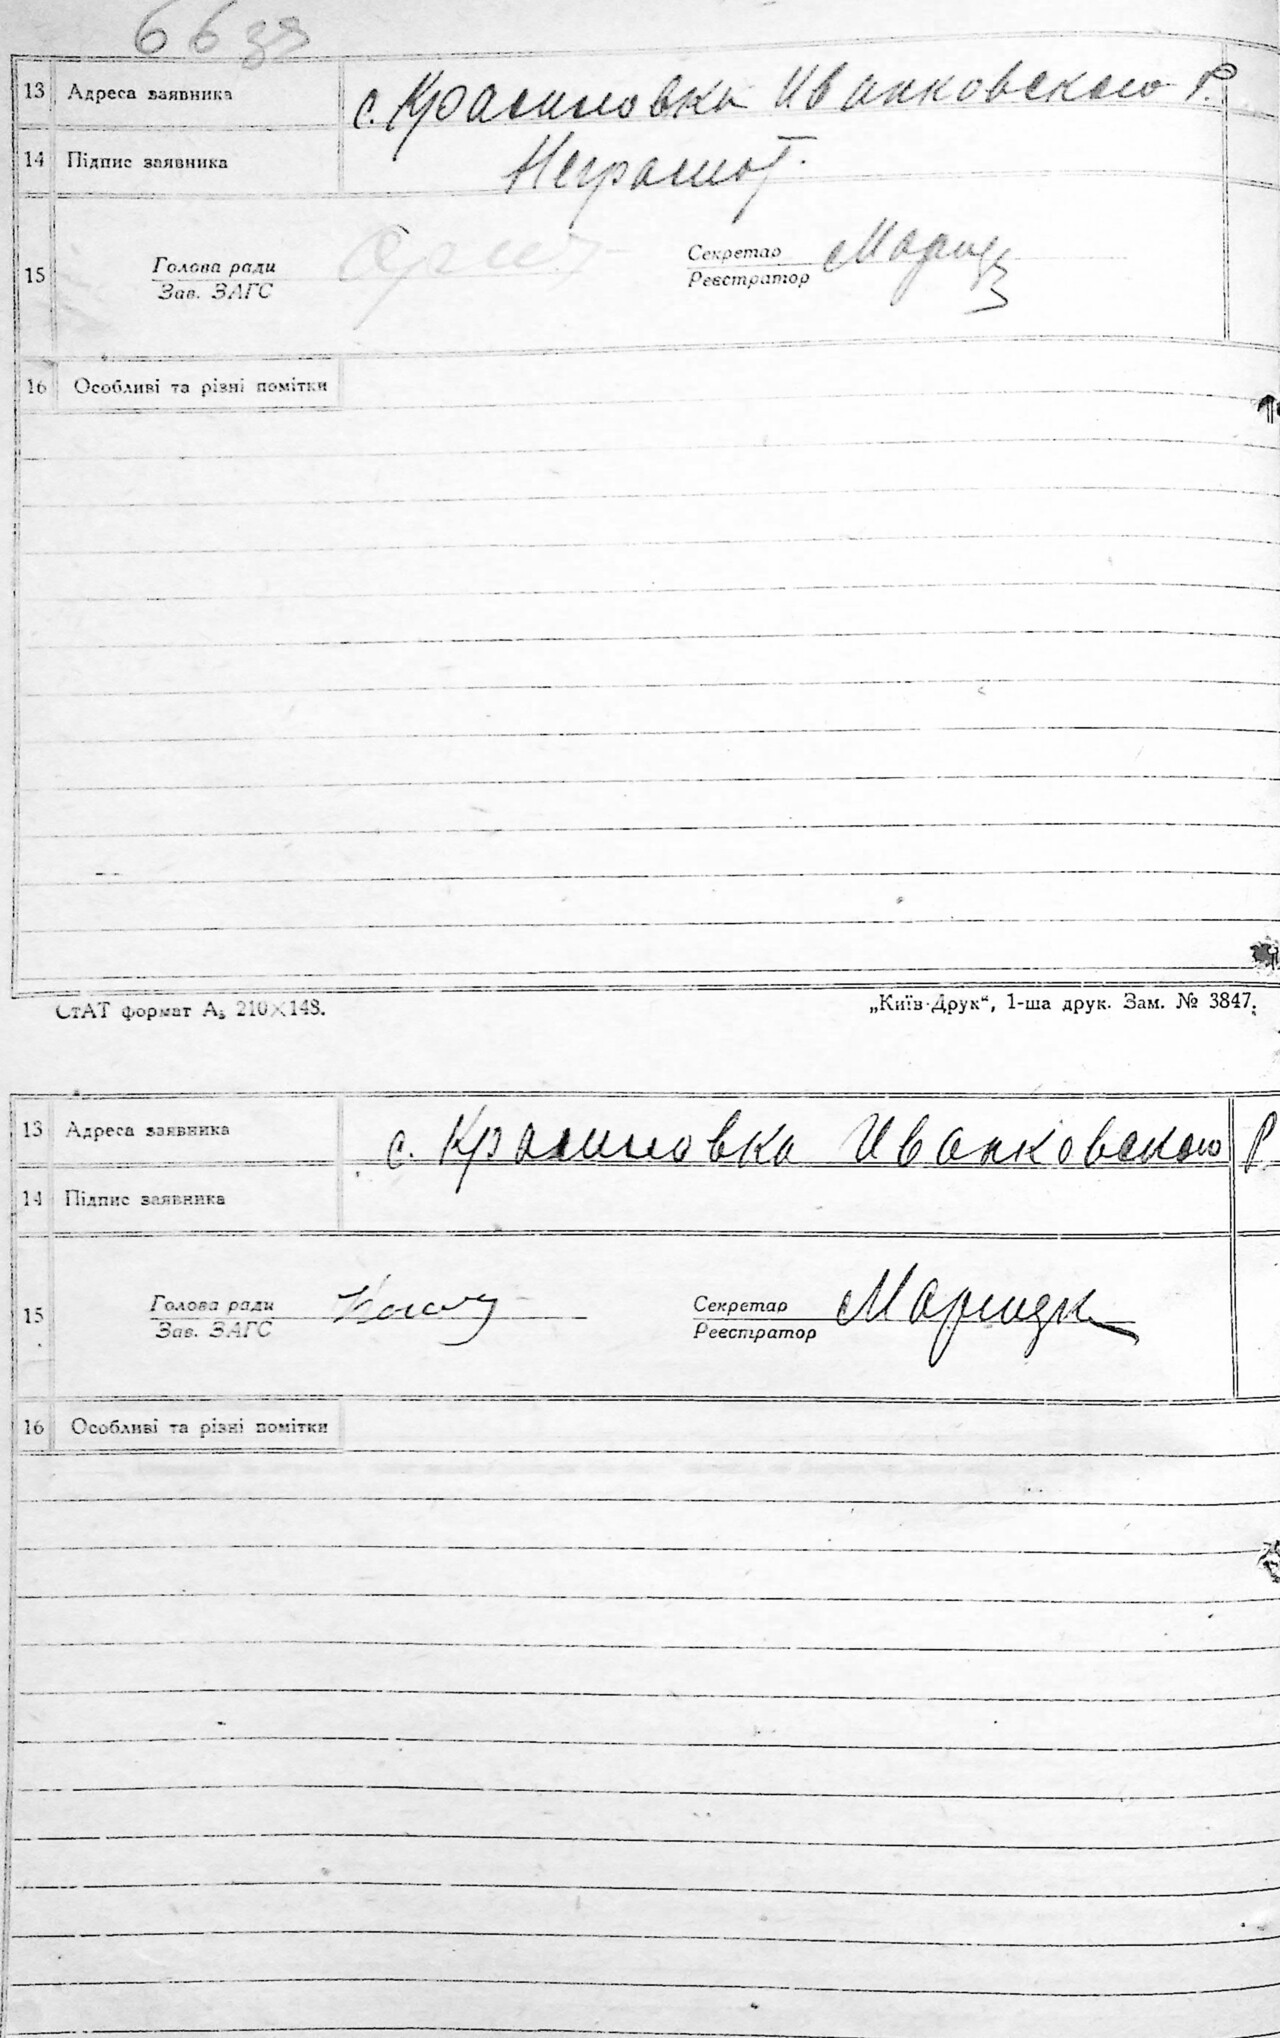 66 зв
13 Адреса заявника с. Красиловка Иванковского Р.
14 Підпис заявника Неграмот.
15 Голова ради Секретар
Зав. ЗАГС Реєстратор
16 Особливі та різні помітки
СтАТ формат А₅ 210×148. „Київ-Друк“, 1-ша друк. Зам. № 3847.
13 Адреса заявника с. Красиловка Иванковского Р.
14 Підпис заявника
15 Голова ради Секретар
Зав. ЗАГС Реєстратор
16 Особливі та різні помітки